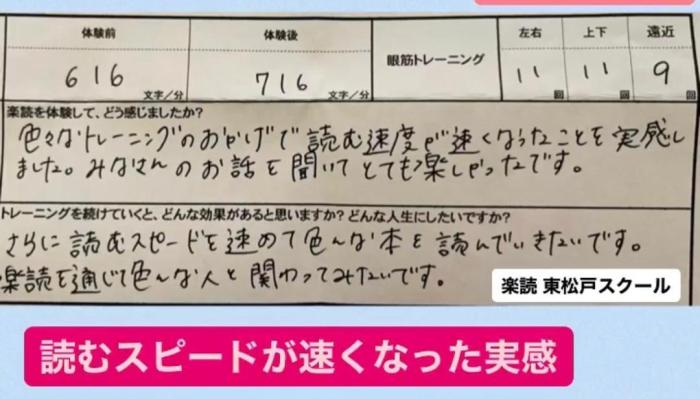 体験前
体験後
眼筋トレーニング
左右
上下
遠近
616
文字／分
716
文字／分
11
回
11
回
9
回
楽読を体験して、どう感じましたか？
色々なトレーニングのおかげで読む速度が速くなったことを実感し
ました。みなさんのお話を聞いてとても楽しかったです。
トレーニングを続けていくと、どんな効果があると思いますか？どんな人生にしたいですか？
さらに読むスピードを速めて色んな本を読んでいきたいです。
楽読を通じて色んな人と関わってみたいです。
楽読 東松戸スクール
読むスピードが速くなった実感